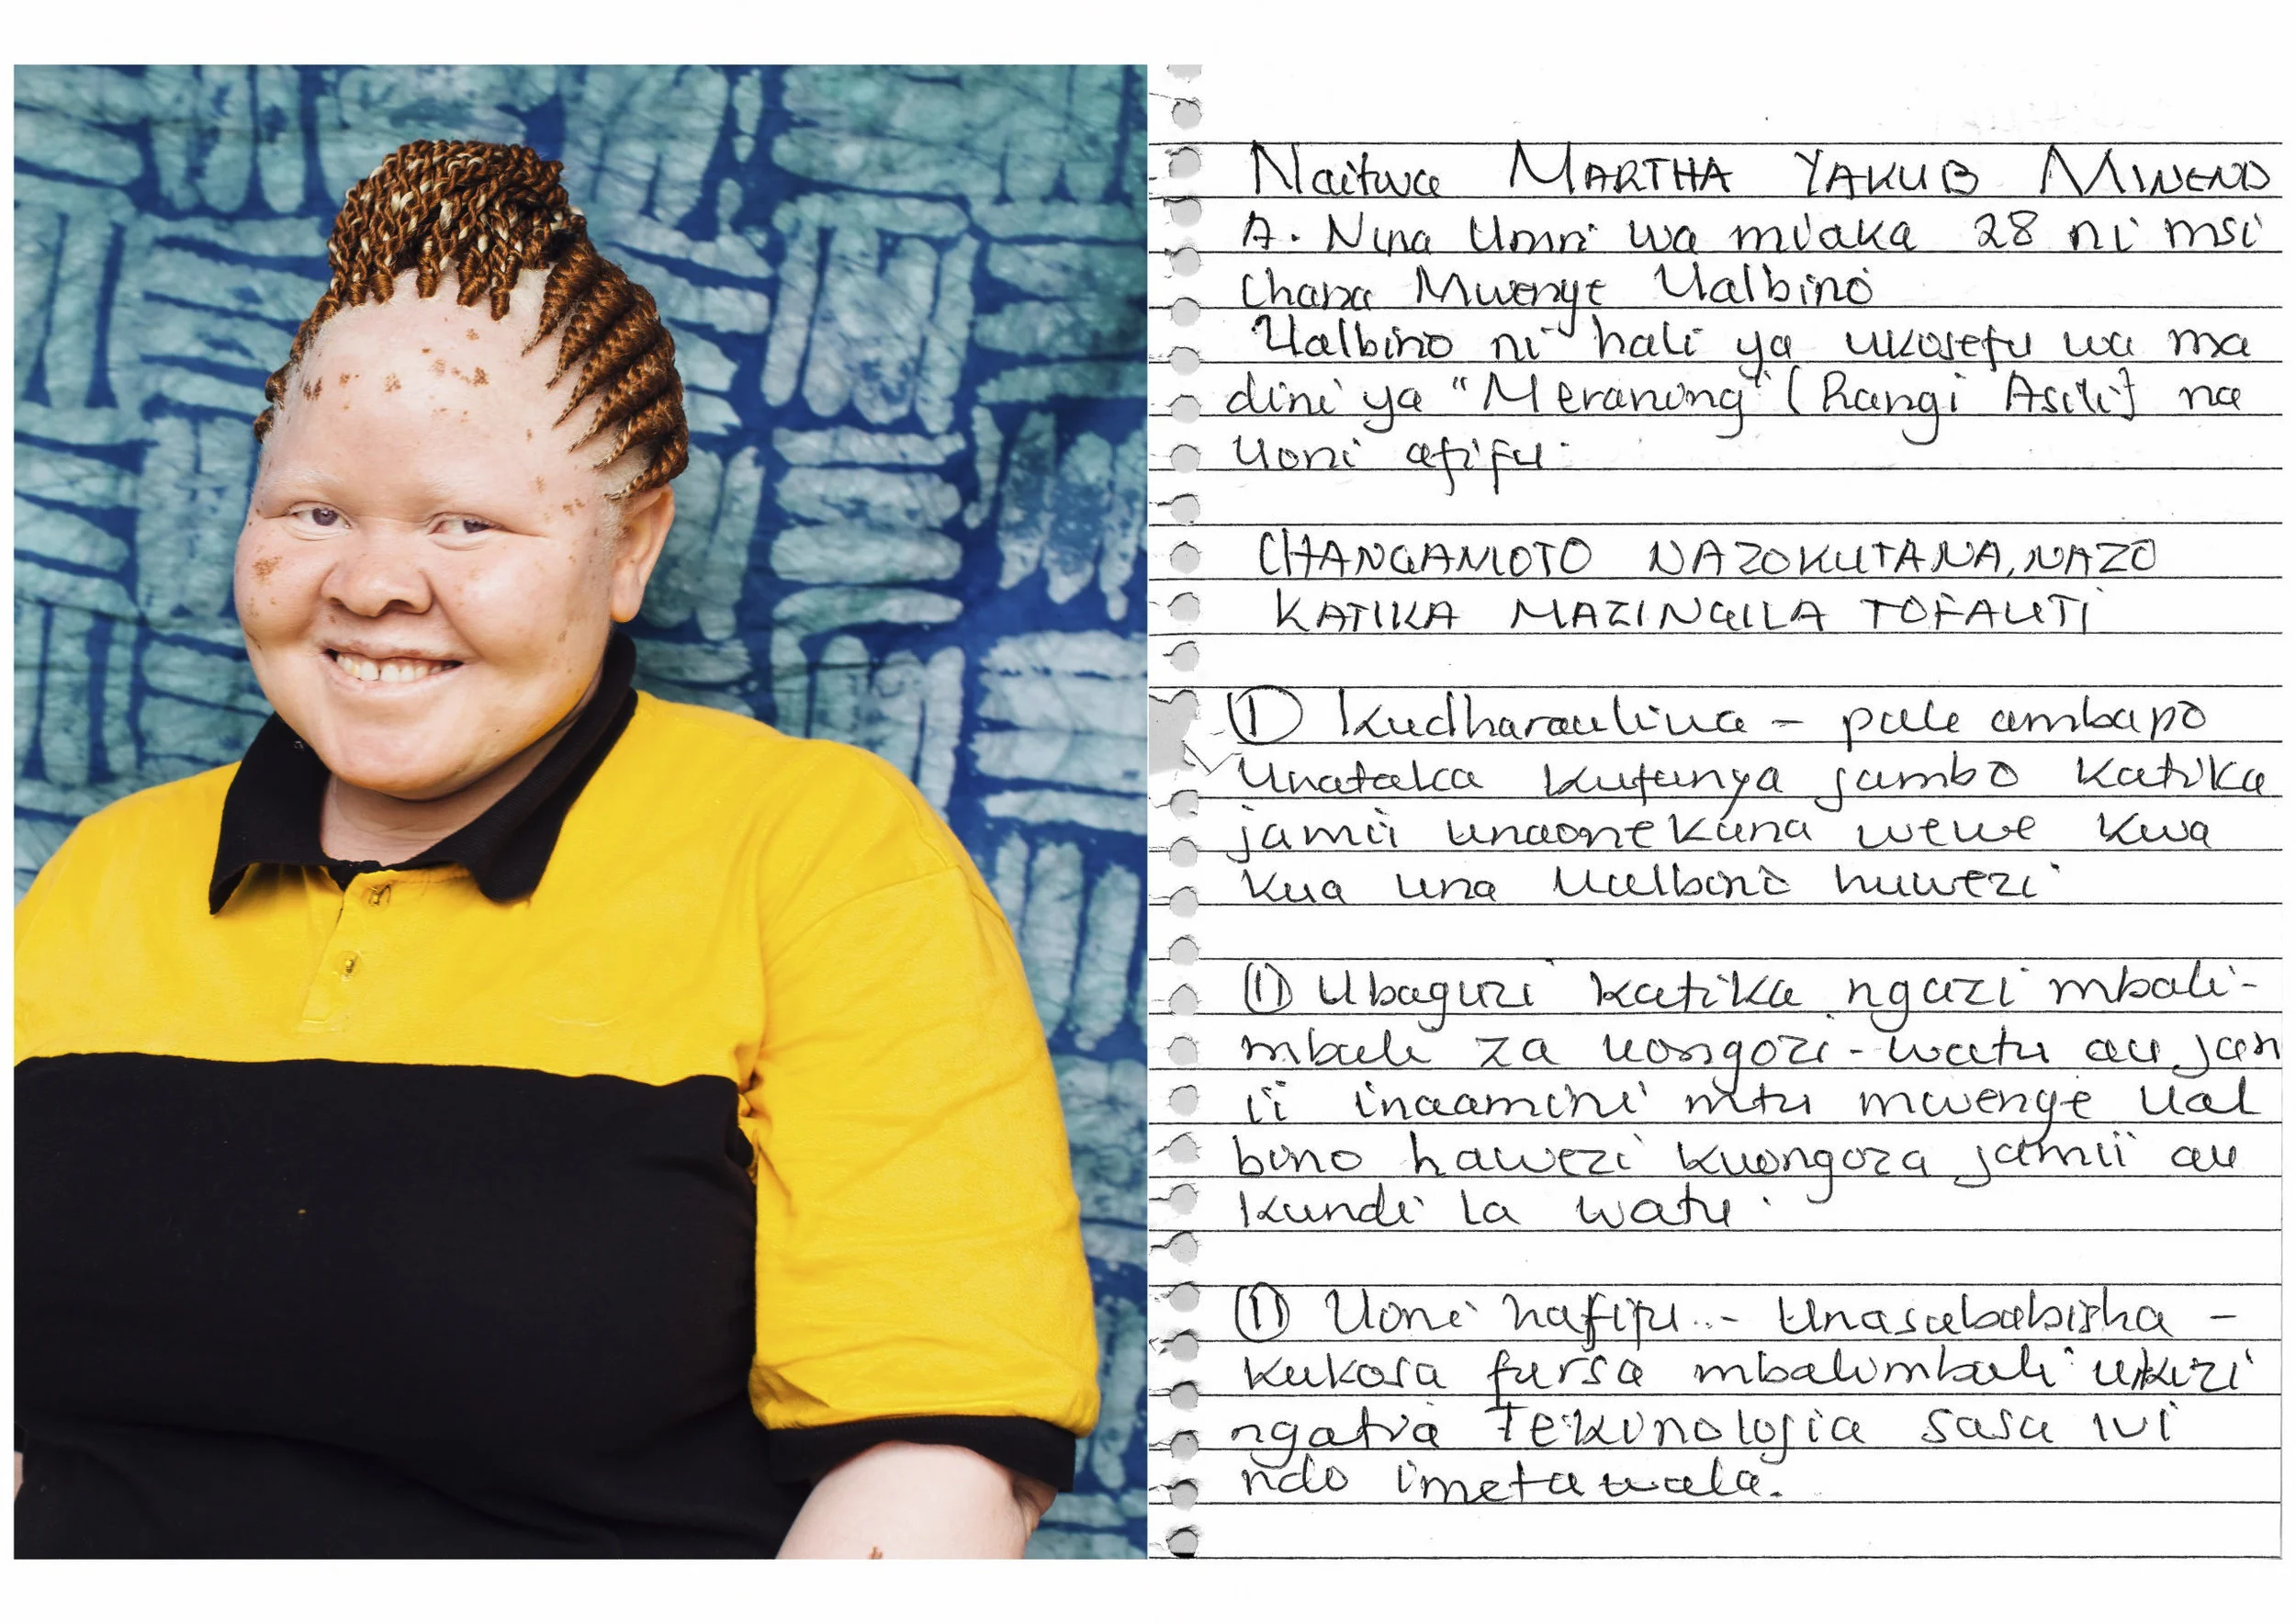 Naitwa MARTHA YAKUB MINEND
A. Nina Umri wa miaka 28 ni msi
chana Mwenye Ualbino
Ualbino ni hali ya ukosefu wa ma
dini ya "Meranining" (Rangi Asili) na
Uoni afifu.
CHANGAMOTO NAZOKUTANA, NAZO
KATIKA MAZINGILA TOFAUTI
(I) Kudharauliwa - pale ambapo
Unataka kufanya jambo katika
jamii unaonekana wewe kwa
kua una Ualbino huwezi
(II) Ubaguzi katika ngazi mbali-
mbali za uongozi - watu au jam
ii inaamini mtu mwenye Ual
bino hawezi kuongoza jamii au
kundi la watu.
(II) Uoni hafifu - Unasababisha -
kukosa fursa mbalimbali ukizi
ngatia Tekinolojia sasa ivi
ndo imetawala.